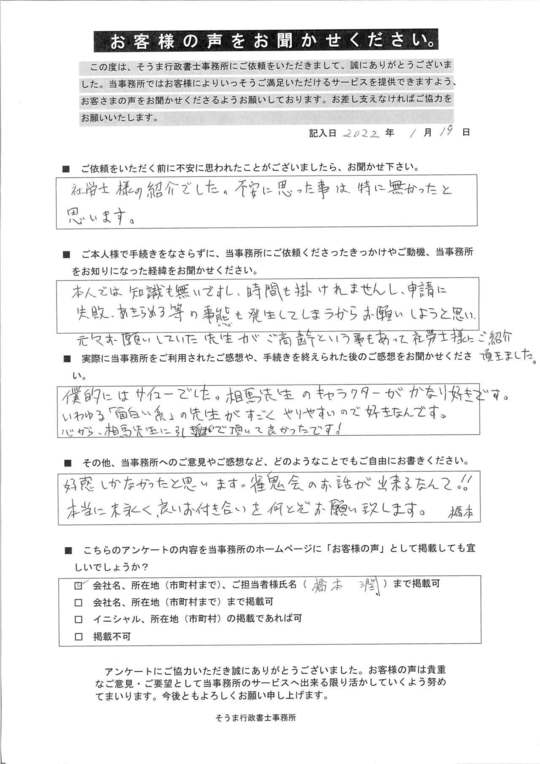 お客様の声をお聞かせください。
この度は、そうま行政書士事務所にご依頼をいただきまして、誠にありがとうございま
した。当事務所ではお客様によりいっそうご満足いただけるサービスを提供できますよう、
お客さまの声をお聞かせくださるようお願いしております。お差し支えなければご協力を
お願いいたします。
記入日 2022 年 1 月 19 日
■ ご依頼をいただく前に不安に思われたことがございましたら、お聞かせ下さい。
社労士様の紹介でした。不安に思った事は特に無かったと
思います。
■ ご本人様で手続きをなさらずに、当事務所にご依頼くださったきっかけやご動機、当事務所
をお知りになった経緯をお聞かせください。
本人では知識も無いですし、時間も掛けれませんし、申請に
失敗、あきらめる等の事態も発生してしまうからお願いしようと思い
元々お願いしていた先生がご高齢という事もあって社労士様にご紹介
頂きました。
■ 実際に当事務所をご利用されたご感想や、手続を終えられた後のご感想をお聞かせくださ
い。
僕的にはサイコーでした。相馬先生のキャラクターがかなり好きです。
いわゆる「面白い系」の先生がすごくやりやすいので好きなんです。
心から、相馬先生に引 で頂いて良かったです!
■ その他、当事務所へのご意見やご感想など、どのようなことでもご自由にお書きください。
好感しかなかったと思います。雀鬼会のお話が出来るなんて!!
本当に末永く良いお付き合いを何とぞお願い致します。 橋本
■ こちらのアンケートの内容を当事務所のホームページに「お客様の声」として掲載しても宜
しいでしょうか?
☑ 会社名、所在地(市町村まで)、ご担当者様氏名(橋本 潤)まで掲載可
□ 会社名、所在地(市町村まで)まで掲載可
□ イニシャル、所在地(市町村)の掲載であれば可
□ 掲載不可
アンケートにご協力いただき誠にありがとうございました。お客様の声は貴重
なご意見・ご要望として当事務所のサービスへ出来る限り活かしていくよう努め
てまいります。今後ともよろしくお願い申し上げます。
そうま行政書士事務所